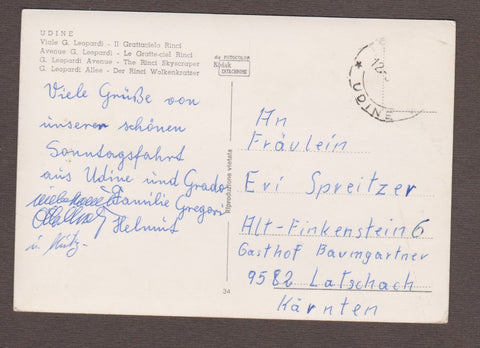 UDINE
Viale G. Leopardi - Il Grattacielo Rinci
Avenue G. Leopardi - Le Gratte-ciel Rinci
G. Leopardi Avenue - The Rinci Skyscraper
G. Leopardi Allee - Der Rinci Wolkenkratzer
da FOTOCOLOR
Kodak
EKTACHROME
UDINE
Viele Grüße von
unserer schönen
Sonntagsfahrt
aus Udine und Grado
Familie Gregori
Helmut
u.
An
Fräulein
Evi Spreitzer
Alt-Finkenstein 6
Gasthof Baumgartner
9582 Latschach
Kärnten
Riproduzione vietata
34